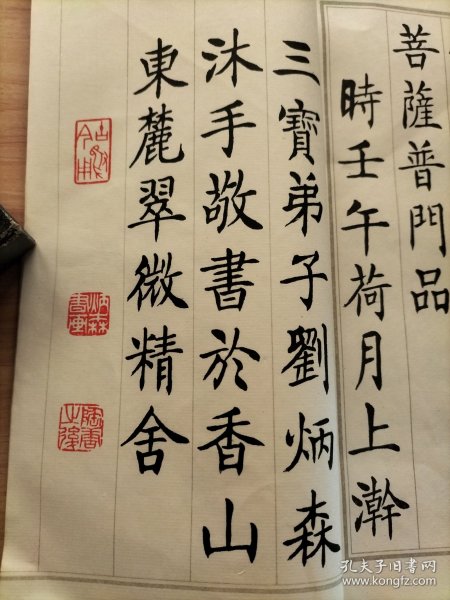 菩薩普門品
時壬午荷月上澣
三寶弟子劉炳森
沐手敬書於香山
東麓翠微精舍
炳森書畫
孔夫子旧书网
www.kongfz.com